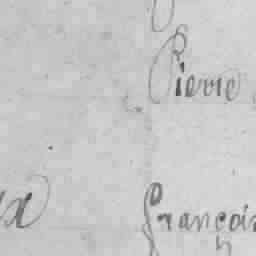 Pierre
x françois